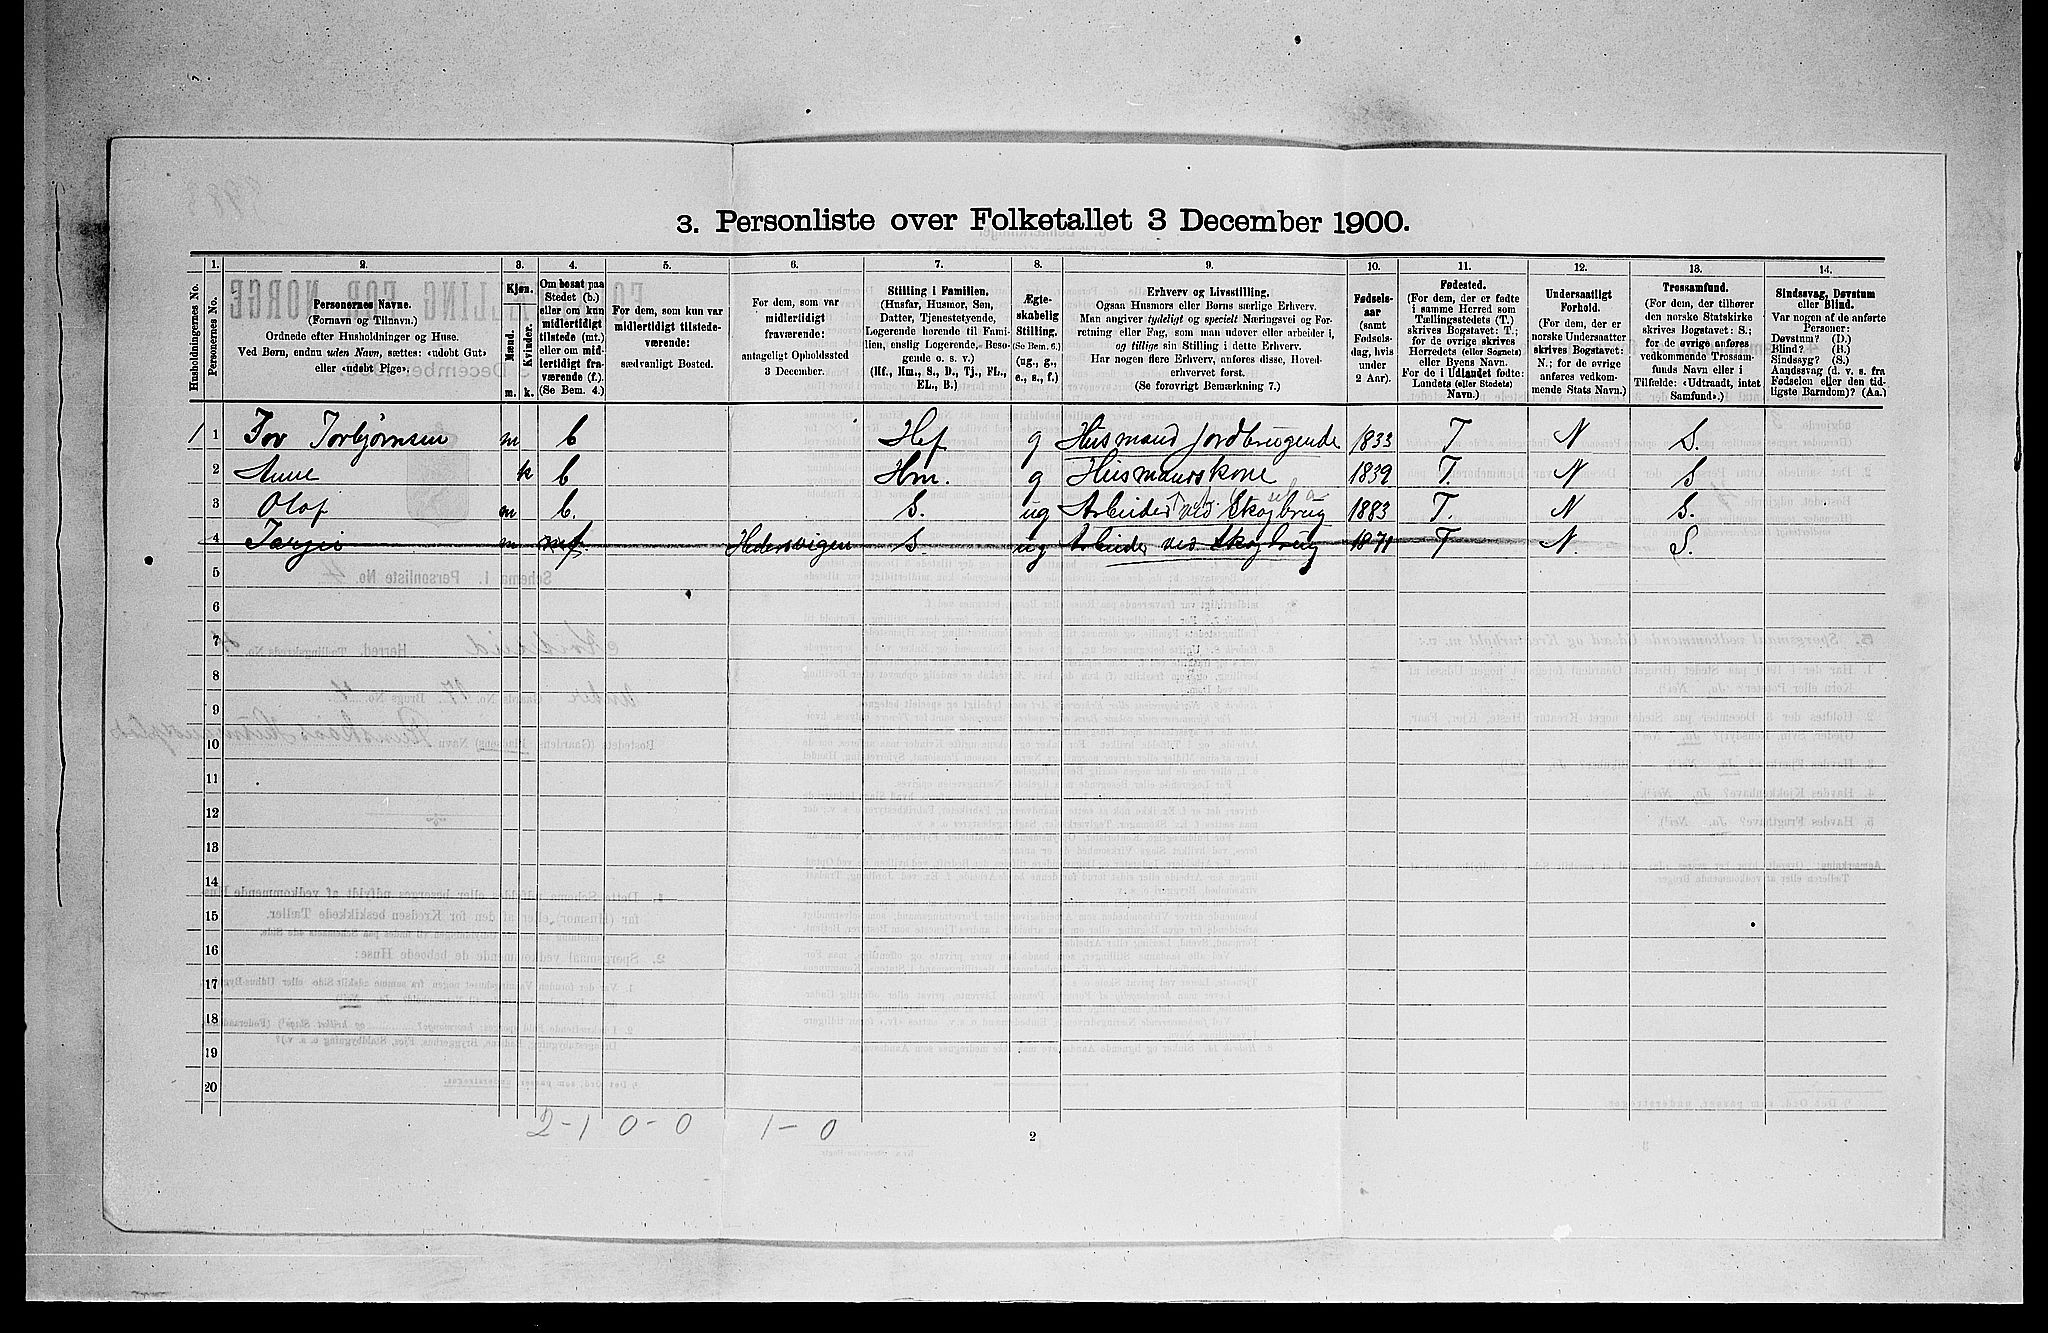 3. Personliste over Folketallet 3 December 1900.
1. 2. 3. 4. 5. 6. 7. 8. 9. 10. 11. 12. 13. 14.
Husholdningernes No.
Personernes No.
Personernes Navne.
(Fornavn og Tilnavn.)
Ordnede efter Husholdninger og Huse.
Ved Børn, endnu uden Navn, sættes: «udøbt Gut»
eller «udøbt Pige».
Kjøn.
Mænd.
Kvinder.
m. k.
Om bosat paa
Stedet (b.)
eller om kun
midlertidigt
tilstede (mt.)
eller om mid-
lertidigt fra-
værende (f.).
(Se Bem. 4.)
For dem, som kun var
midlertidigt tilstede-
værende:
sædvanligt Bosted.
For dem, som var
midlertidigt
fraværende:
antageligt Opholdssted
3 December.
Stilling i Familien.
(Husfar, Husmor, Søn,
Datter, Tjenestetyende,
Logerende hørende til Fami-
lien, enslig Logerende, Besø-
gende o. s. v.)
(Hf., Hm., S., D., Tj., FL.,
EL., B.)
Ægte-
skabelig
Stilling.
(Se Bem. 6.)
(ug., g.,
e., s., f.)
Erhverv og Livsstilling.
Ogsaa Husmors eller Børns særlige Erhverv.
Man angiver tydeligt og specielt Næringsvei og For-
retning eller Fag, som man udøver eller arbeider i,
og tillige sin Stilling i dette Erhverv.
Har nogen flere Erhverv, anføres disse, Hoved-
erhvervet først.
(Se forøvrigt Bemærkning 7.)
Fødsels-
aar
(samt
Fødsels-
dag, hvis
under
2 Aar).
Fødested.
(For dem, der er fødte
i samme Herred som
Tællingsstedets (T.)
skrives Bogstavet: T.;
for de øvrige skrives
Herredets (eller Sognets)
eller Byens Navn.
For de i Udlandet fødte:
Landets (eller Stedets)
Navn.)
Undersaatligt
Forhold.
(For dem, der er
norske Undersaatter
skrives Bogstavet:
N.; for de øvrige
anføres vedkom-
mende Stats Navn.)
Trossamfund.
(For dem, der tilhører
den norske Statskirke
skrives Bogstavet: S.;
for de øvrige anføres
vedkommende Trossam-
funds Navn eller i
Tilfælde: «Udtraadt, intet
Samfund».)
Sindssvag, Døvstum
eller Blind.
Var nogen af de anførte
Personer:
Døvstum? (D.)
Blind? (B.)
Sindssyg? (S.)
Aandssvag (d. v. s. fra
Fødselen eller den tid-
ligste Barndom)? (Aa.)
1 1 Tor Torbjørnsen m b Hf g Husmand jordbrugende 1833 T N S.
2 Anne k b Hm. g Husmandskone 1839 T. N S
3 Olaf m b. S. ug Arbeider ved Skogbrug 1883 T. N S.
4 Targei m f. S. ug Arbeider ved Skogbrug 1871 T N. S.
5
6
7
8
9
10
11
12
13
14
15
16
17
18
19
20
2-1 0-0 1-0
2